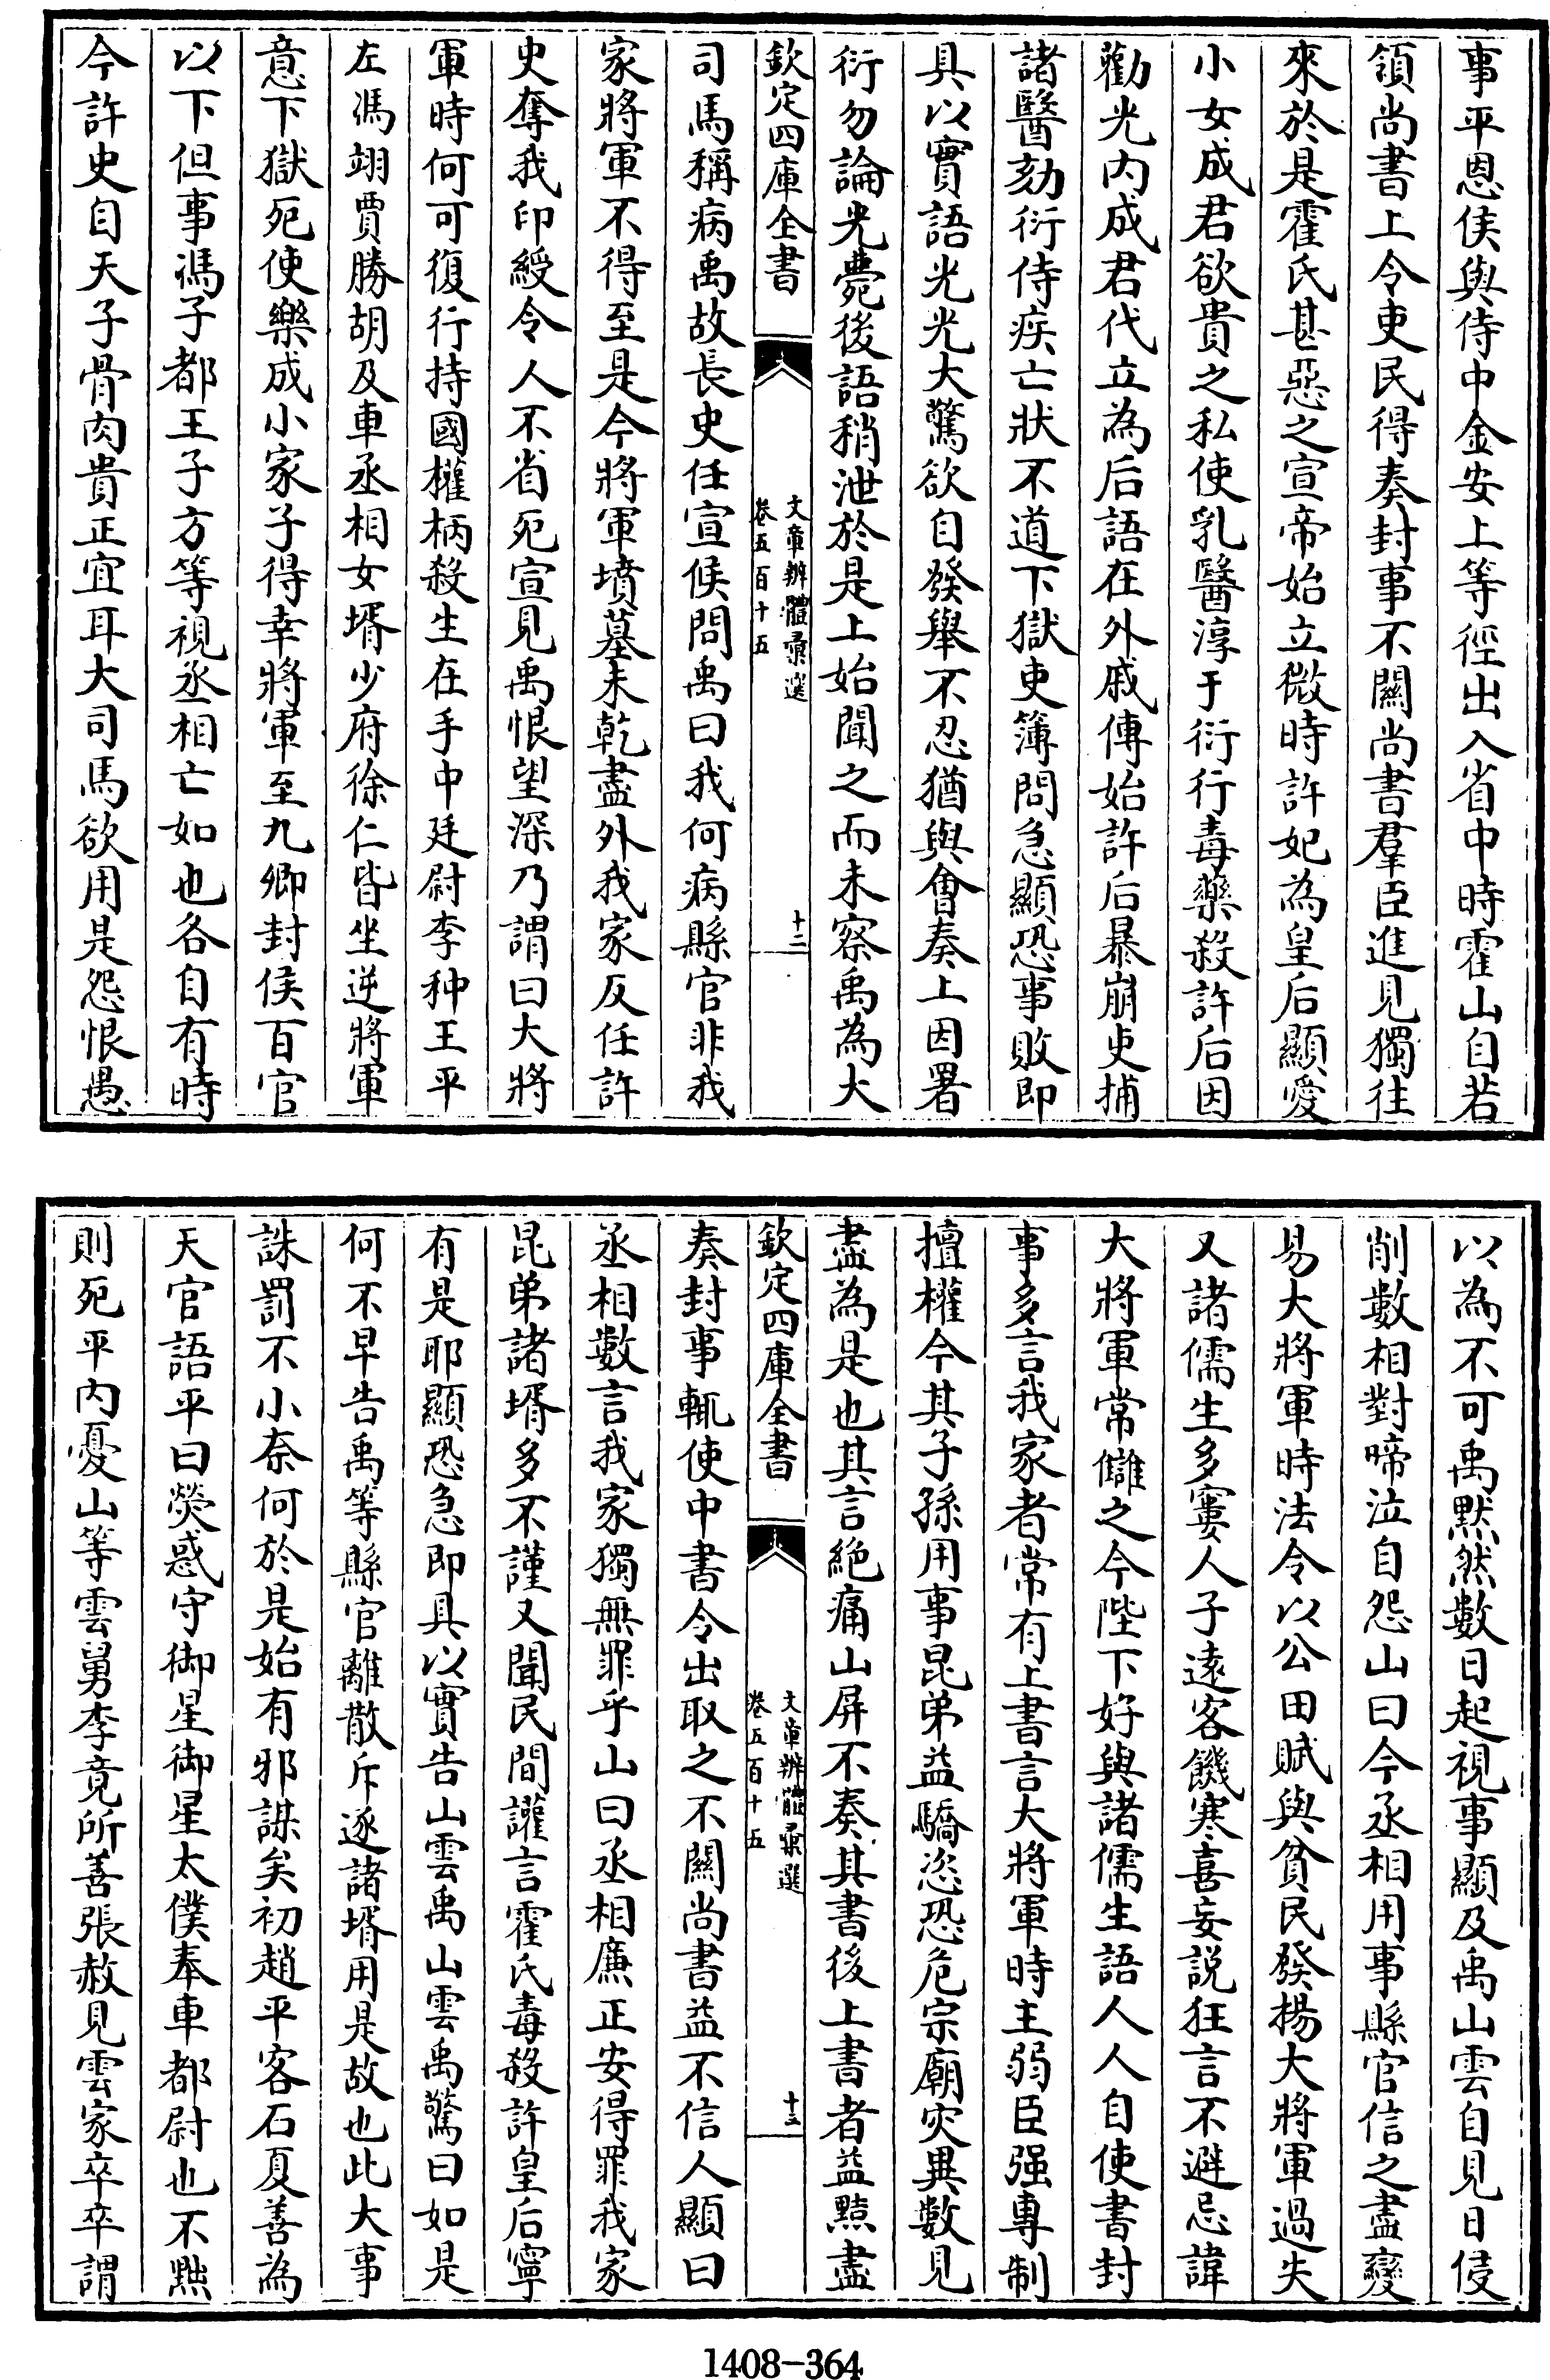 事平恩侯與侍中金安上等徑出入省中時霍山自若
領尚書上令吏民得奏封事不關尚書羣臣進見獨往
來於是霍氏甚惡之宣帝始立微時許妃為皇后顯愛
小女成君欲貴之私使乳醫淳于衍行毒藥殺許后因
勸光內成君代立為后語在外戚傳始許后暴崩吏捕
諸醫劾衍侍疾亡狀不道下獄吏簿問急顯恐事敗即
具以實語光光大驚欲自發舉不忍猶與會奏上因署
衍勿論光薨後語稍泄於是上始聞之而未察禹為大
欽定四庫全書
文章辨體彙選
卷五百十五
十二
司馬稱病禹故長史任宣候問禹曰我何病縣官非我
家將軍不得至是今將軍墳墓未乾盡外我家反任許
史奪我印綬令人不省死宣見禹恨望深乃謂曰大將
軍時何可復行持國權柄殺生在手中廷尉李种王平
左馮翊賈勝胡及車丞相女壻少府徐仁皆坐逆將軍
意下獄死使樂成小家子得幸將軍至九卿封侯百官
以下但事馮子都王子方等視丞相亡如也各自有時
今許史自天子骨肉貴正宜耳大司馬欲用是怨恨愚
以為不可禹默然數日起視事顯及禹山雲自見日侵
削數相對啼泣自怨山曰今丞相用事縣官信之盡變
易大將軍時法令以公田賦與貧民發揚大將軍過失
又諸儒生多窶人子遠客饑寒喜妄說狂言不避忌諱
大將軍常讎之今陛下好與諸儒生語人人自使書封
事多言我家者常有上書言大將軍時主弱臣强專制
擅權今其子孫用事昆弟益驕恣恐危宗廟灾異數見
盡為是也其言絶痛山屏不奏其書後上書者益黠盡
欽定四庫全書
文章辨體彙選
卷五百十五
十三
奏封事輒使中書令出取之不關尚書益不信人顯曰
丞相數言我家獨無罪乎山曰丞相廉正安得罪我家
昆弟諸壻多不謹又聞民間讙言霍氏毒殺許皇后寧
有是耶顯恐急即具以實告山雲禹山雲禹驚曰如是
何不早告禹等縣官離散斥逐諸壻用是故也此大事
誅罰不小奈何於是始有邪謀矣初趙平客石夏善為
天官語平曰熒惑守御星御星太僕奉車都尉也不黜
則死平內憂山等雲舅李竟所善張赦見雲家卒卒謂
1408-364